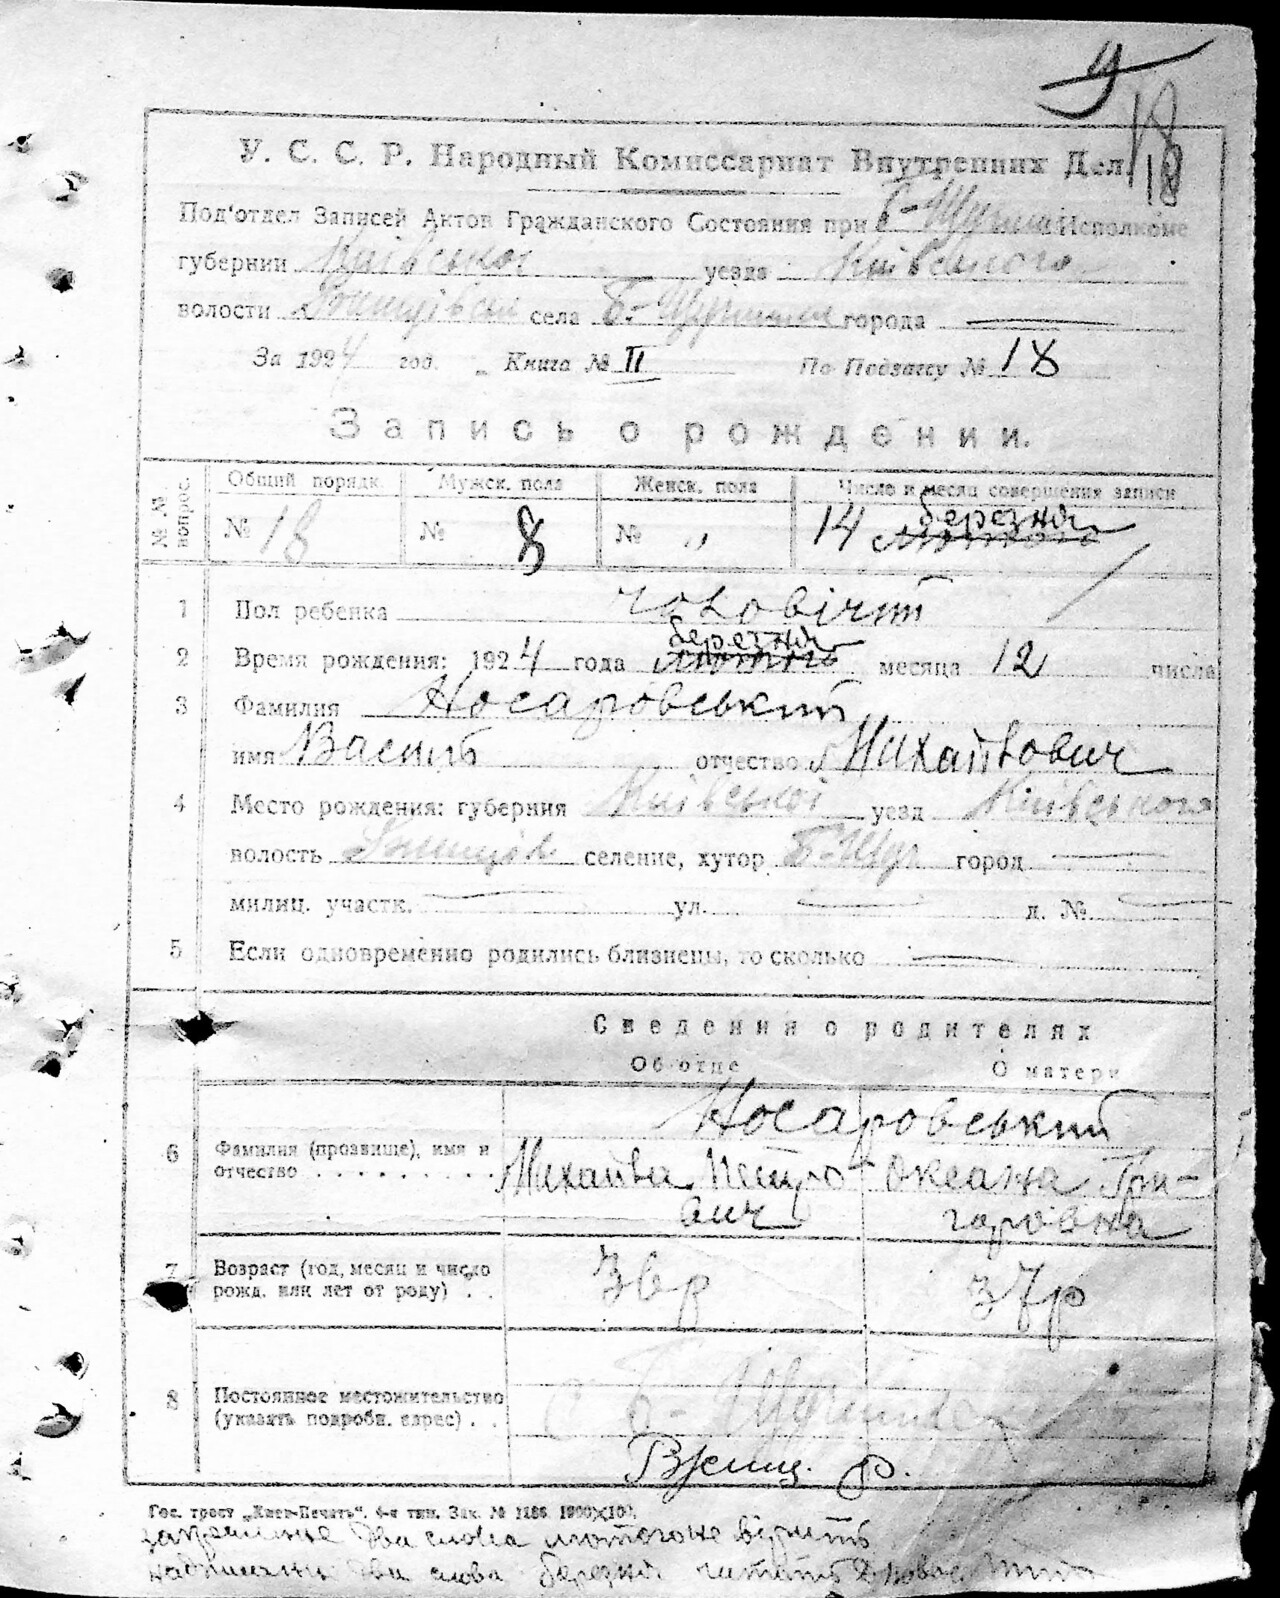 9
18
18
У. С. С. Р. Народный Комиссариат Внутренних Дел.
Под'отдел Записей Актов Гражданского Состояния при Исполкоме
губернии Київської уезда Київського
волости села города
За 1924 год. „ Книга № II По Подзагсу № 18
Запись о рождении.
№ № вопрос. Общий порядк. Мужск. пола Женск. пола Число и месяц совершения записи
№ 18 № 8 № „ 14 березня лютого
1 Пол ребенка чоловічий
березня
2 Время рождения: 1924 года лютого месяца 12 числа
3 Фамилия Носаровський
имя Василь отчество Михайлович
4 Место рождения: губерния Київської уезд Київського
волость селение, хутор город
милиц. участк. ул. д. №
5 Если одновременно родились близнецы, то сколько
Сведения о родителях
Об отце О матери
Носаровський
6 Фамилия (прозвище), имя и отчество Михайла Петро- Оксана Гри-
вич горовна
7 Возраст (год, месяц и число рожд. или лет от роду) 37р
8 Постоянное местожительство (указать подробн. адрес)
р.
Гос. трест „Киев-Печать", 4-я тип. Зак. № 1186
два слова лютого не вірить
два слова березня читать